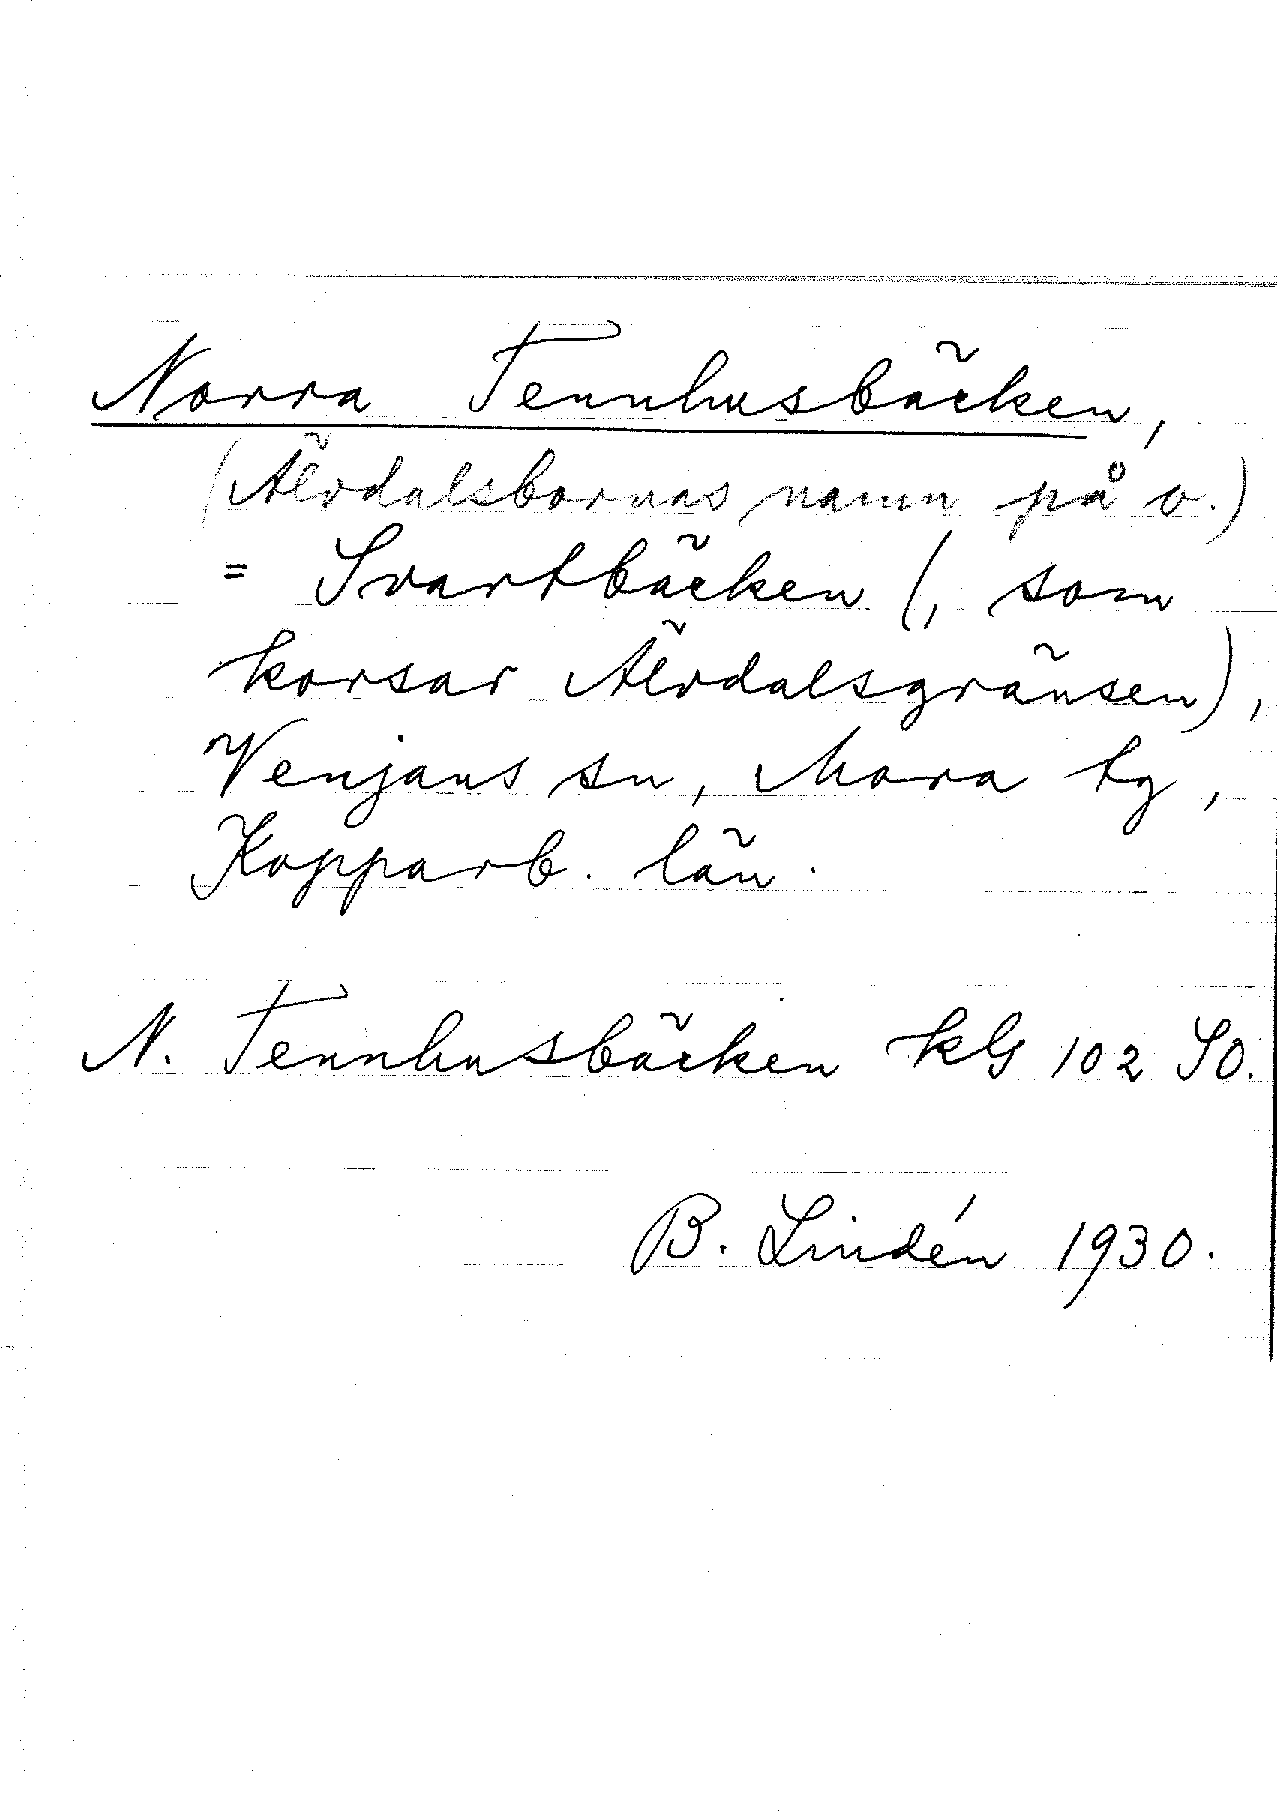 Norra Tennhusbäcken,
(Älvdalsbornas namn på v.)
= Svartbäcken (, som
korsar Älvdalsgränsen),
Venjans sn, Mora tg,
Kopparb. län.
N. Tennhusbäcken kbl 102 SO.
B. Lindén 1930.